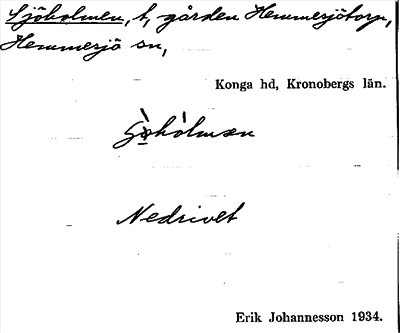 Sjöholmen, t, gården Hemmesjötorp,
Hemmesjö sn,
Konga hd, Kronobergs län.
Nedrivet
Erik Johannesson 1934.